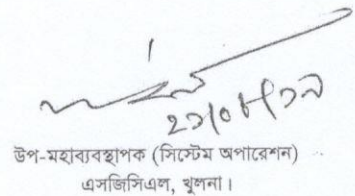 উপ-মহাব্যবস্থাপক (সিস্টেম অপারেশন)
এসজিসিএল, খুলনা।